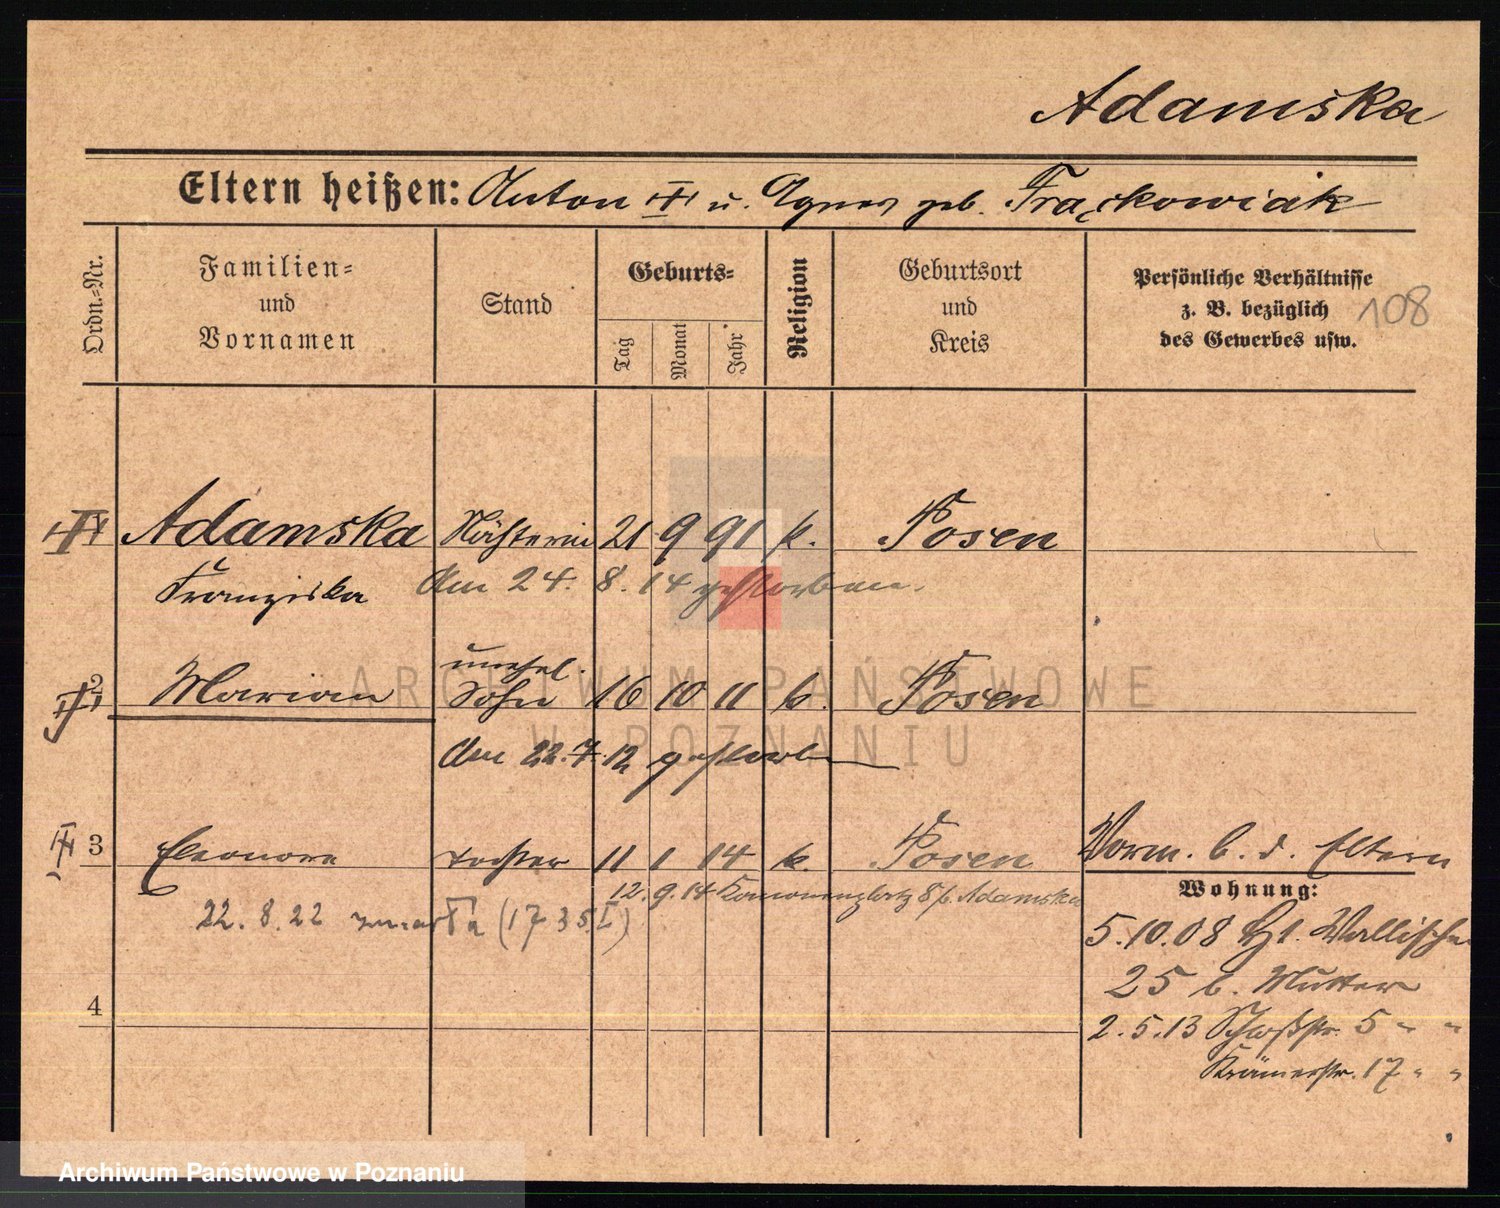 Adamska
Eltern heißen: Anton u. Agnes geb. Frąckowiak
Ordn.-Nr.
Familien-
und
Vornamen
Stand
Geburts-
Tag
Monat
Jahr
Religion
Geburtsort
und
Kreis
Persönliche Verhältnisse
z. B. bezüglich
des Gewerbes usw.
108
Adamska Nähterin 21 9 91 k. Posen
Franziska Am 24. 8. 14 gestorben.
unehel.
2 Marian Sohn 16 10 11 k. Posen
Am 22.7.12 gestorben
3 Eleonora Tochter 11 1 14 k. Posen
Vorm. b. d. Eltern
12. 9. 14 8 b. Adamska
22. 8. 22 zmarła (1735 I)
Wohnung:
5.10.08 Wallischei
25 b. Mutter
4
2.5.13 Schloßstr. 5 " "
Krämerstr. 17 " "
ARCHIWUM PAŃSTWOWE
W POZNANIU
Archiwum Państwowe w Poznaniu